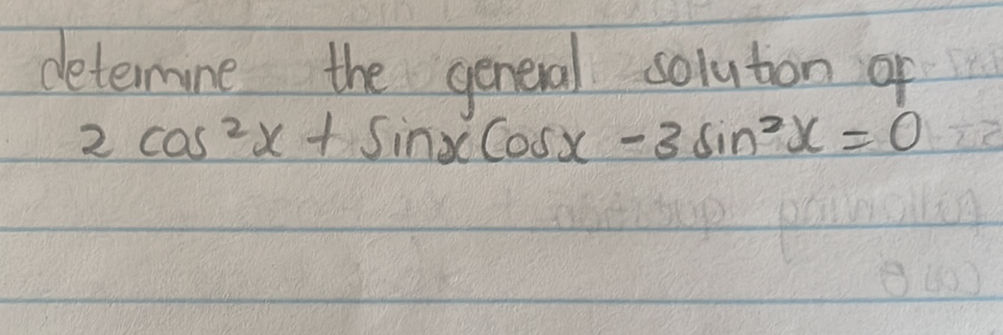 determine the general solution of
2 cos²x + sinx cosx - 3 sin²x = 0